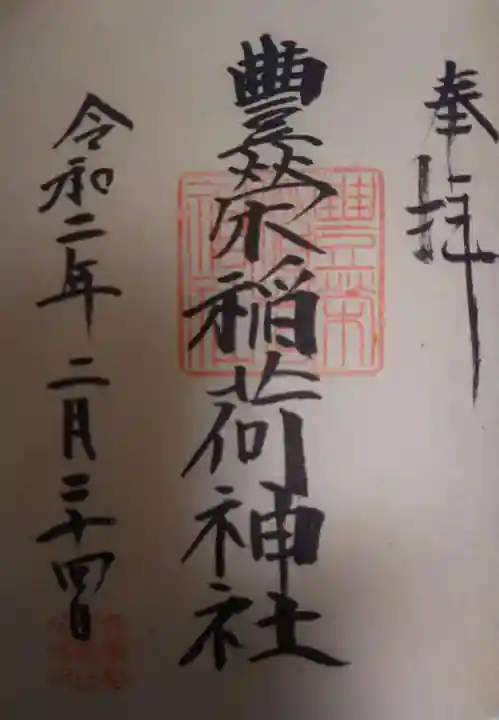 奉拝
豊榮稲荷神社
令和二年二月二十四日